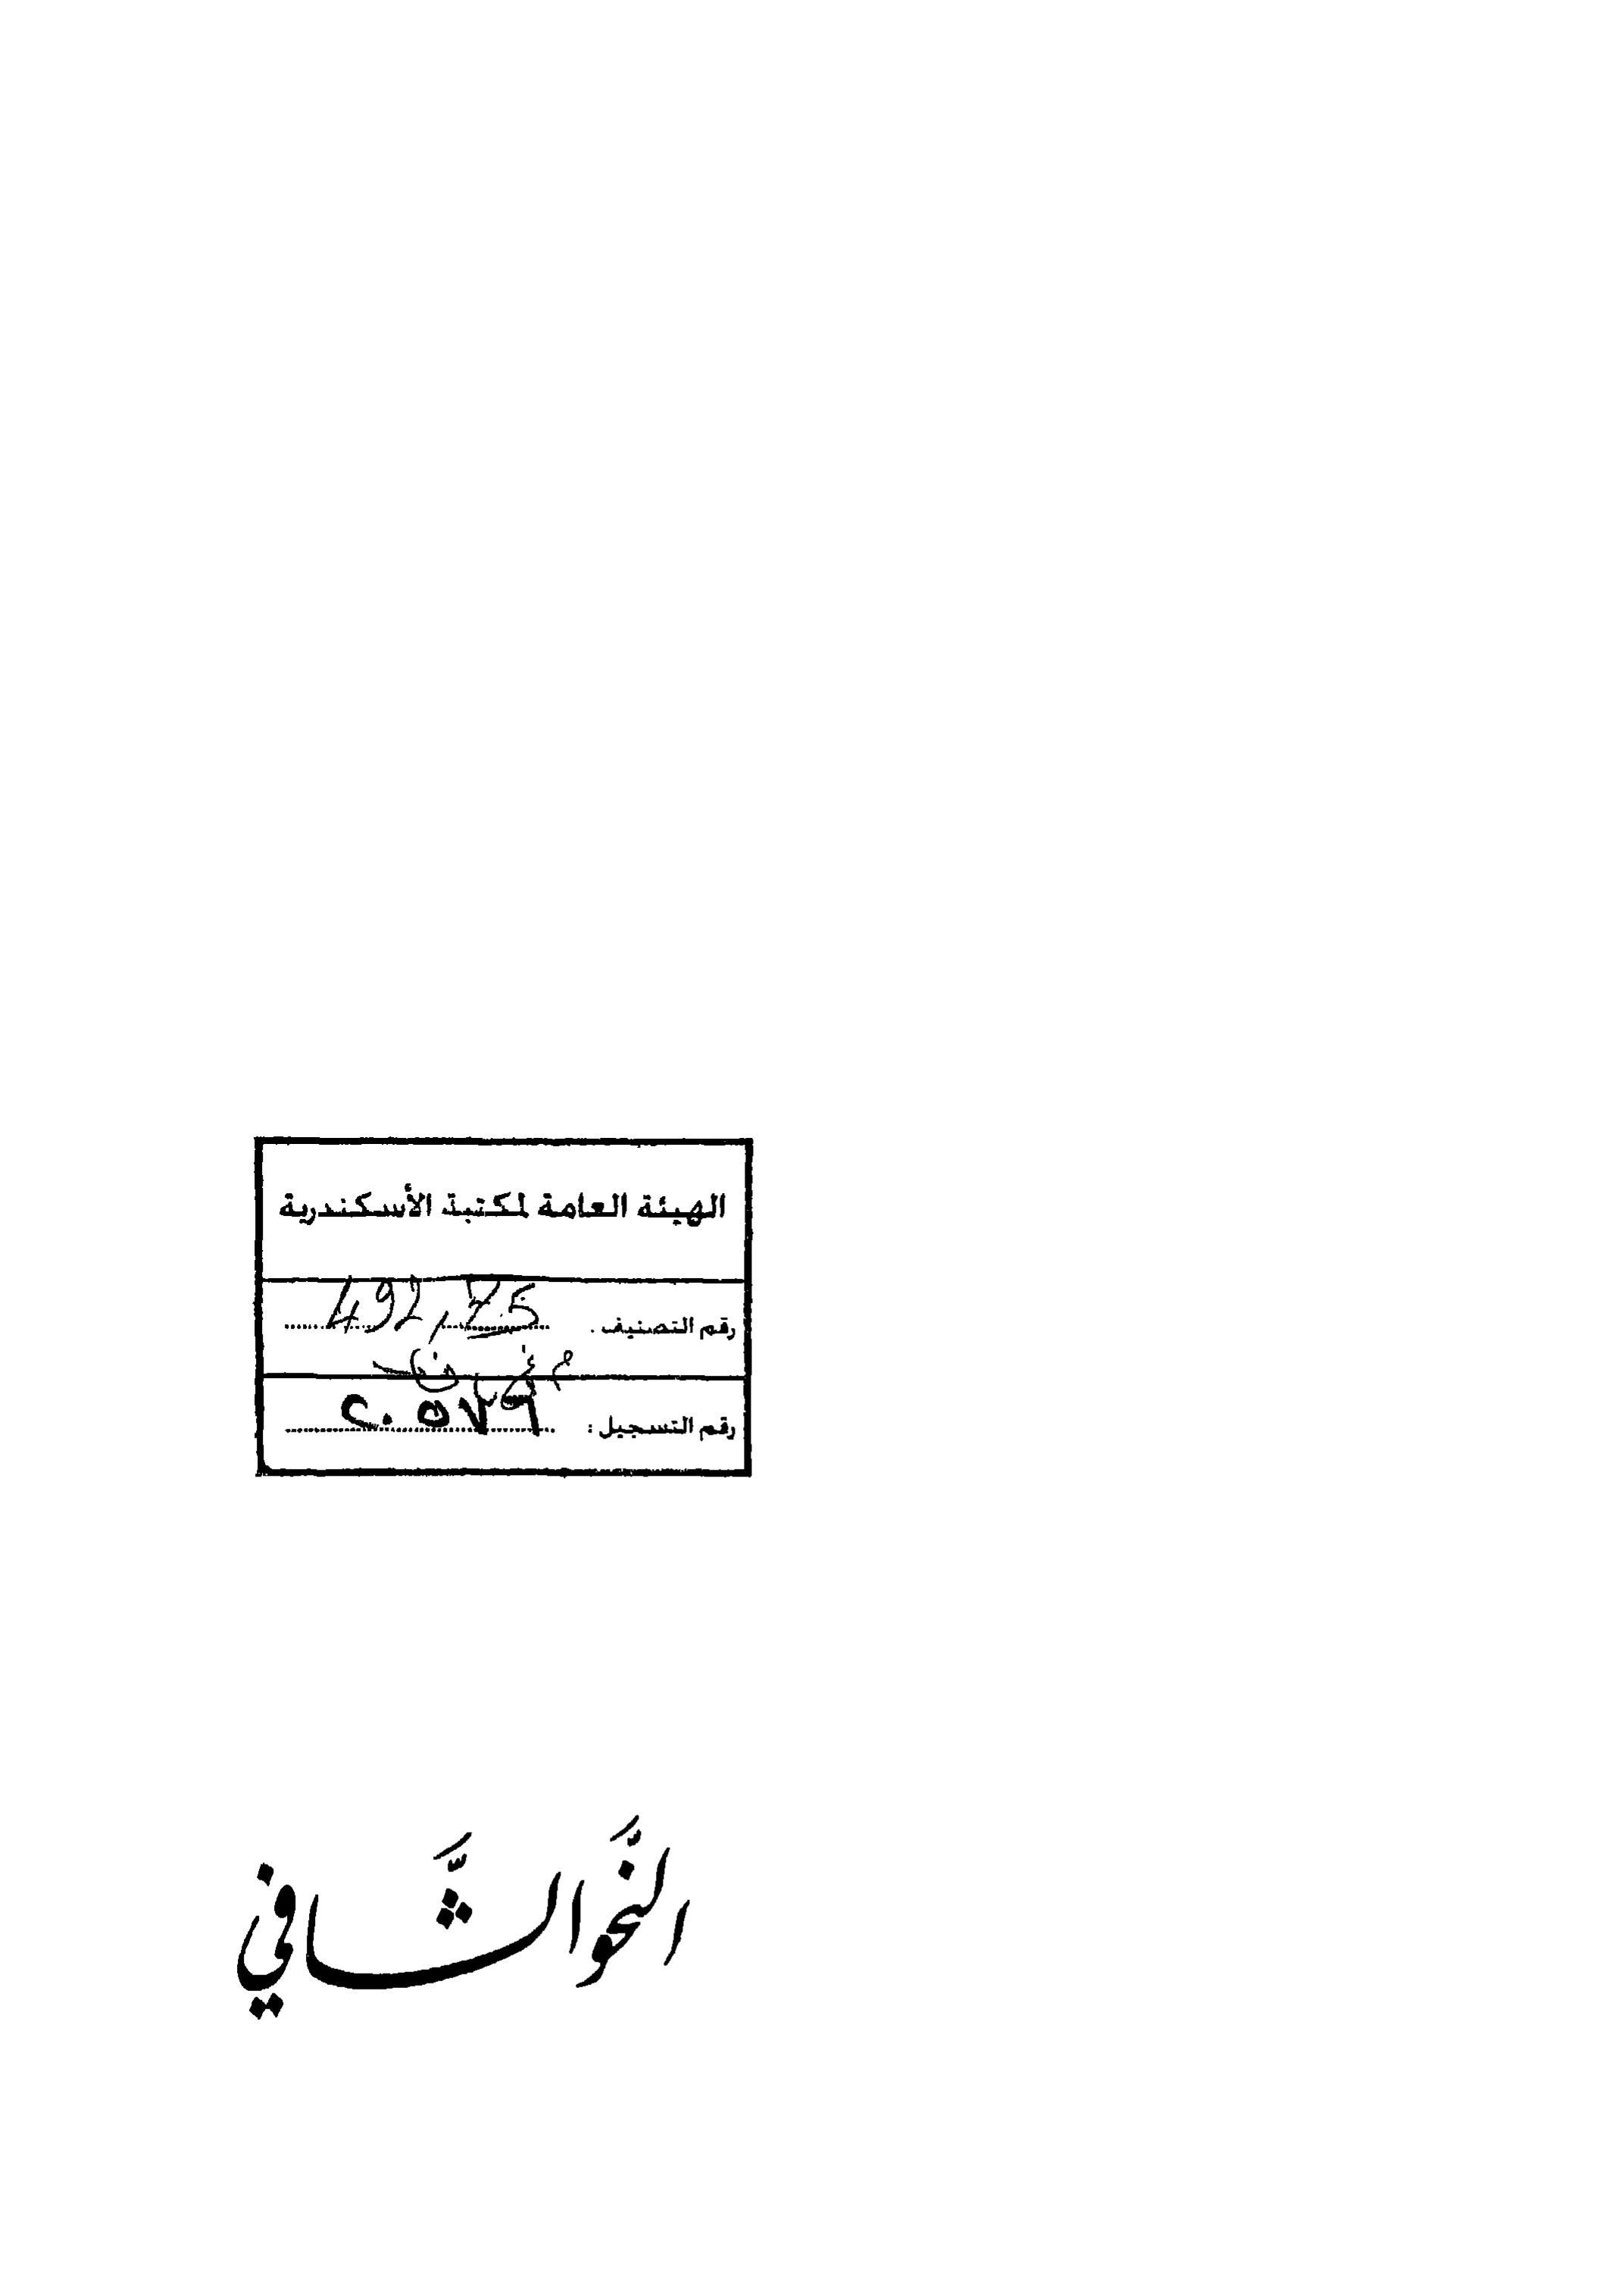 الهيئة العامة لمكتبة الأسكندرية
رقم التصنيف . 492,75
رقم التسجيل : ٢٠٥٧٩
النَّحو الشَّافي